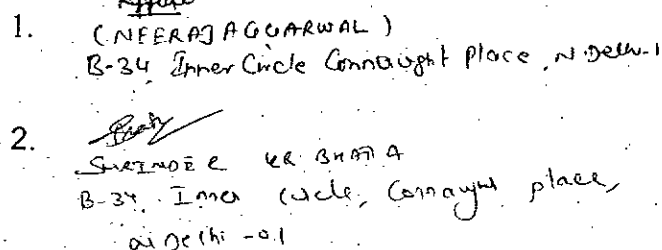 1.
(NEERAJ AGGARWAL)
B-34 Inner Circle Connaught Place, N. Delhi-1
2.
SURINDER KR BHATIA
B-34, Inner Circle, Connaught place,
N Delhi -01